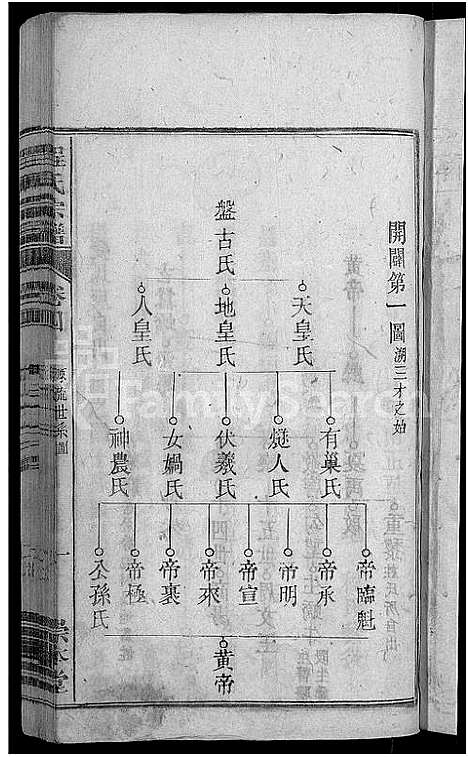 開闢第一圖 溯三才之始
盤古氏
天皇氏
地皇氏
人皇氏
有巢氏
燧人氏
伏羲氏
女媧氏
神農氏
帝臨魁
帝承
帝明
帝宣
帝來
帝裏
帝極
公孫氏
黄帝
程氏宗譜
卷四
源流世系圖
一
FamilySearch